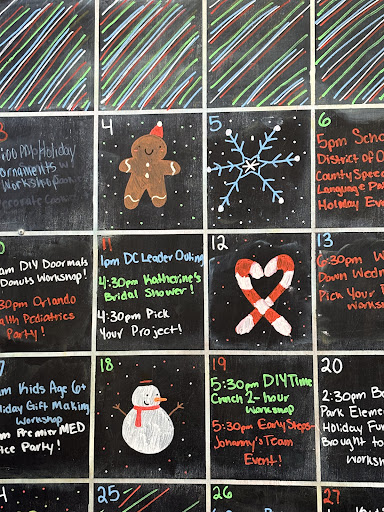 3
:00 PM Holiday
ornaments w/
Workshop
4
5
6
5pm
District of O
County Spee
Language P
Holiday Eve
0
am DIY Doormats
Donuts Workshop!
30pm Orlando
alth Pediatrics
Party!
11
1pm DC Leader Outing
4:30pm Katherine's
Bridal Shower!
4:30pm Pick
Your Project!
12
13
6:30pm W
Down Wedne
Pick Your
Works
7
am Kids Age 6+
liday Gift Making
Workshop
pm Premier MED
fice Party!
18
19
5:30pm DIY Time
Crunch 2-hour
Workshop
5:30pm Early Steps-
Johanny's Team
Event!
20
2:30pm Bo
Park Eleme
Holiday Fun
Brought to
Worksh
4
25
26
27